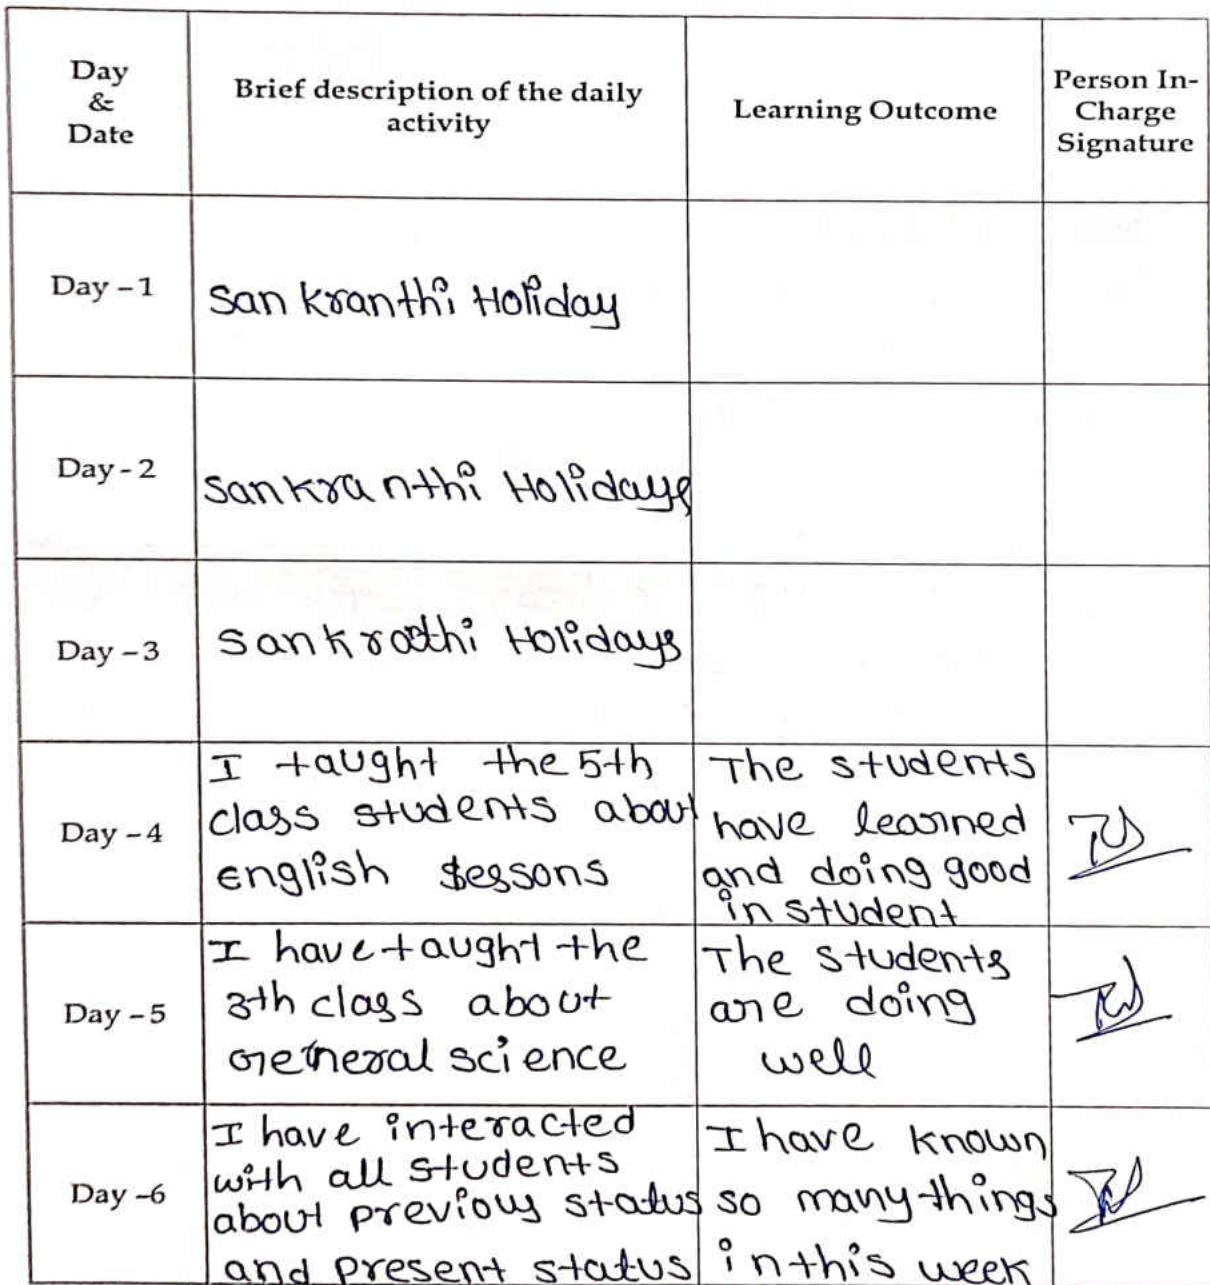 Day
&
Date
Brief description of the daily
activity
Learning Outcome
Person In-
Charge
Signature
Day – 1
San kranthi Holiday
Day - 2
Sankranthi Holidays
Day – 3
Sankrathi Holidays
Day – 4
I taught the 5th
class students about
english sessons
The students
have learned
and doing good
in student
Day – 5
I have taught the
3th class about
General science
The students
are doing
well
Day –6
I have interacted
with all students
about previous status
and present status
I have known
so many things
in this week